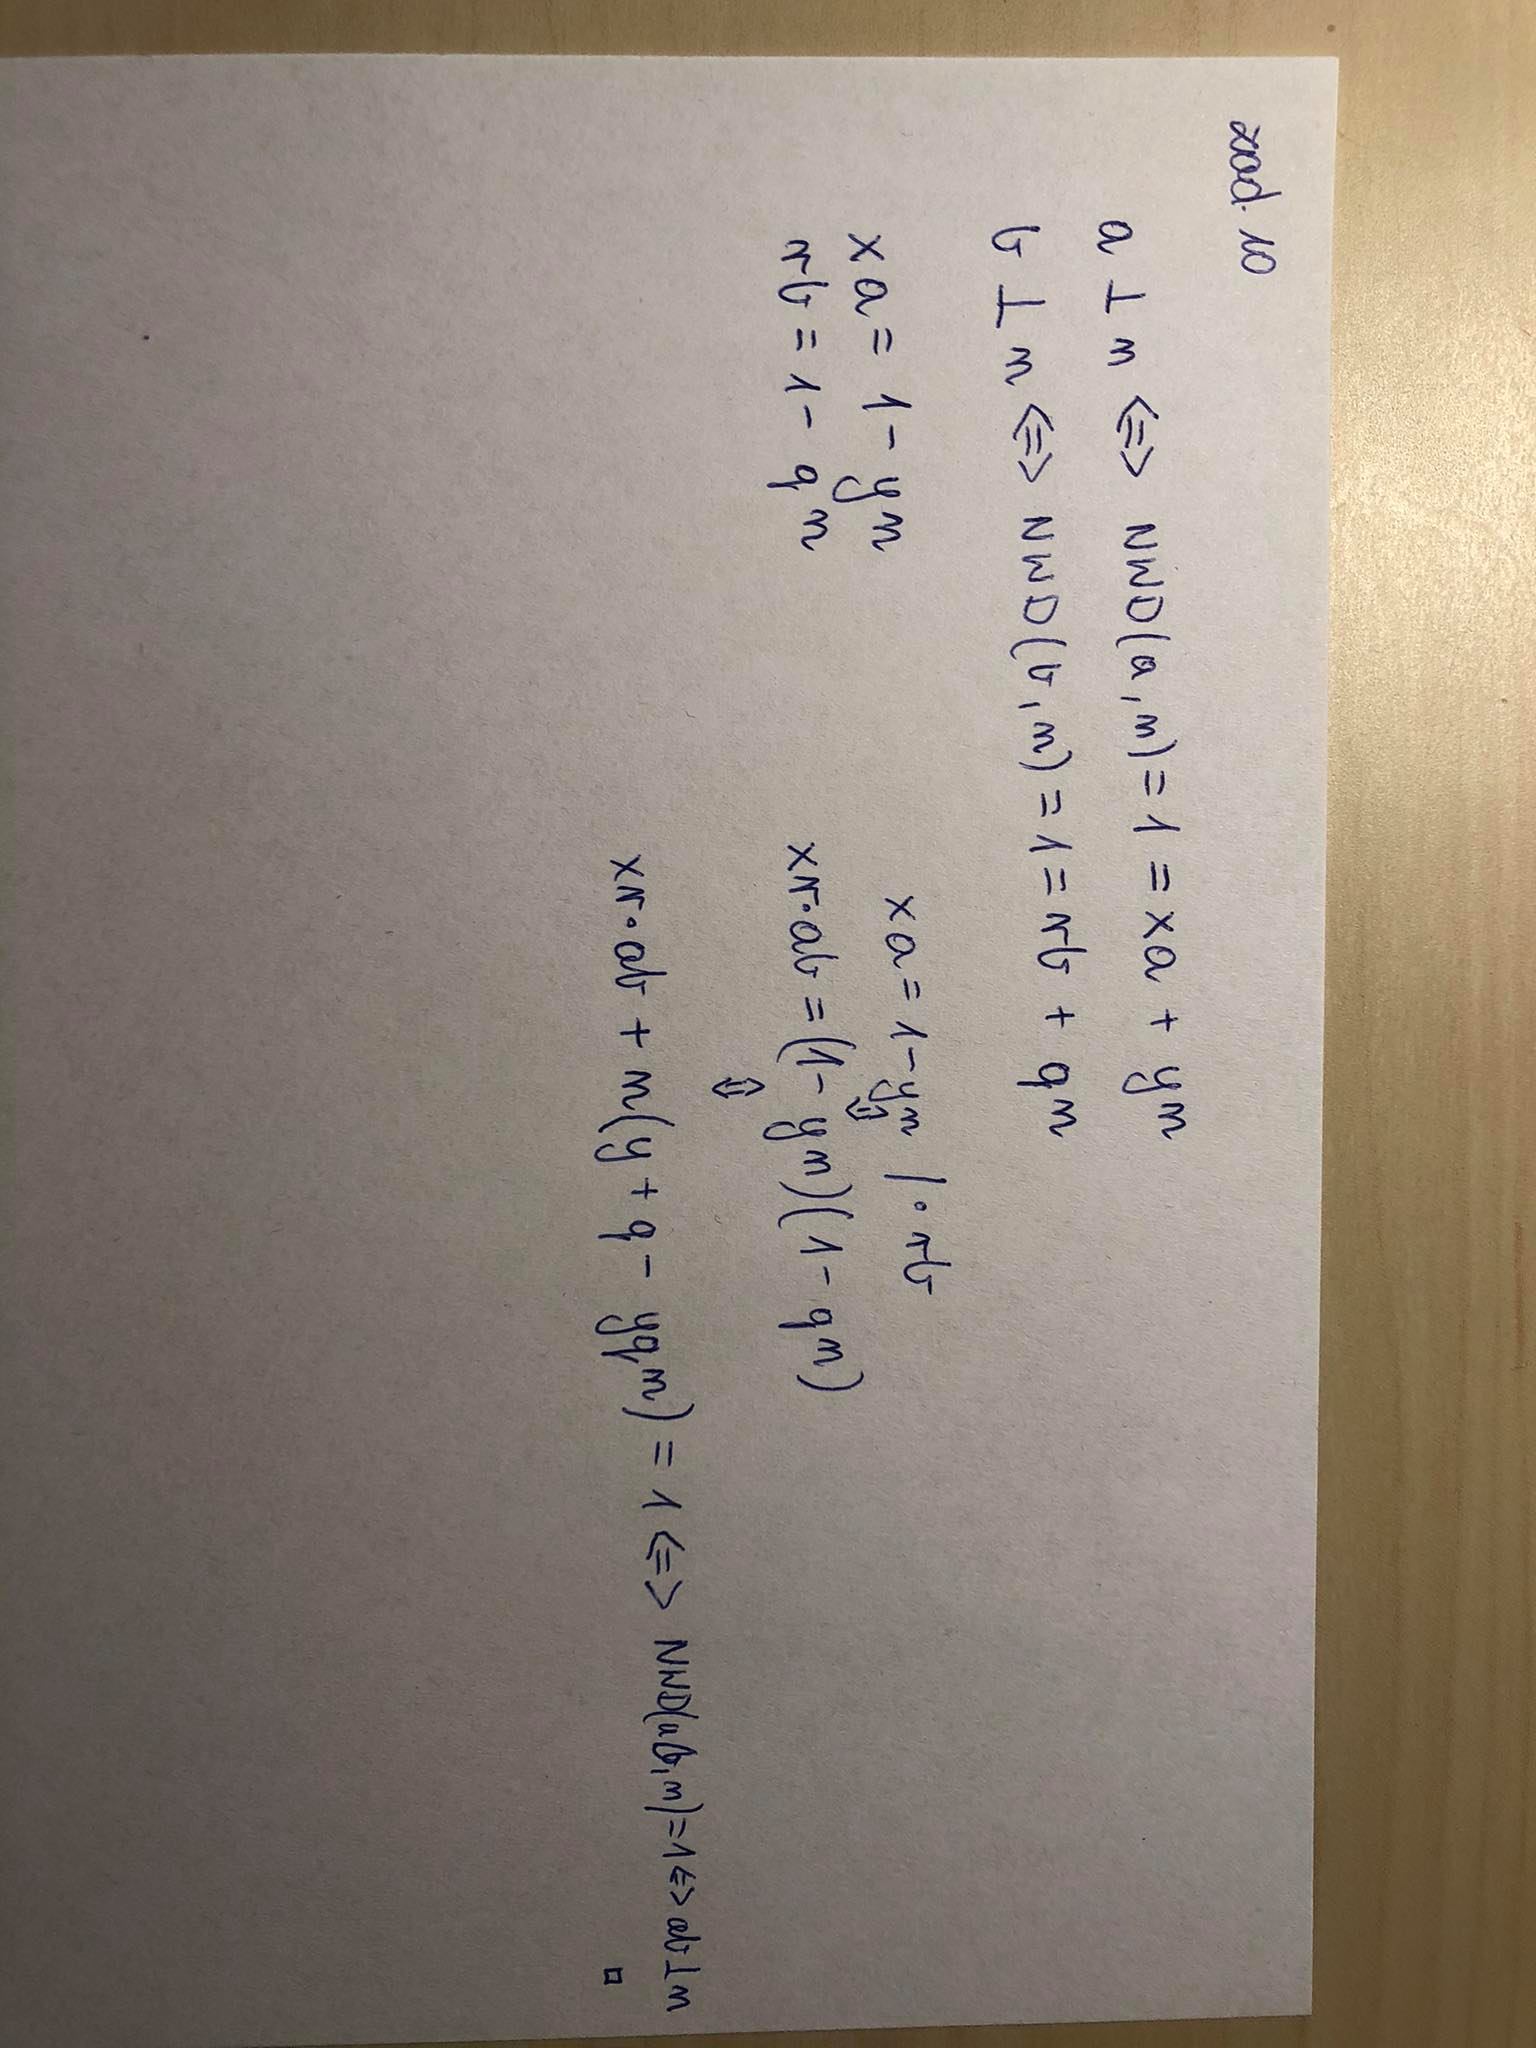 zad. 10
a ⊥ n <=> NWD(a, n) = 1 = xa + yn
b ⊥ n <=> NWD(b, n) = 1 = rb + qn
xa = 1 - yn
rb = 1 - qn
xa = 1 - yn / · rb
⇕
xr·ab = (1 - yn)(1 - qn)
⇕
xr·ab + n(y + q - yqn) = 1 <=> NWD(ab, n) = 1 <=> ab ⊥ n
□